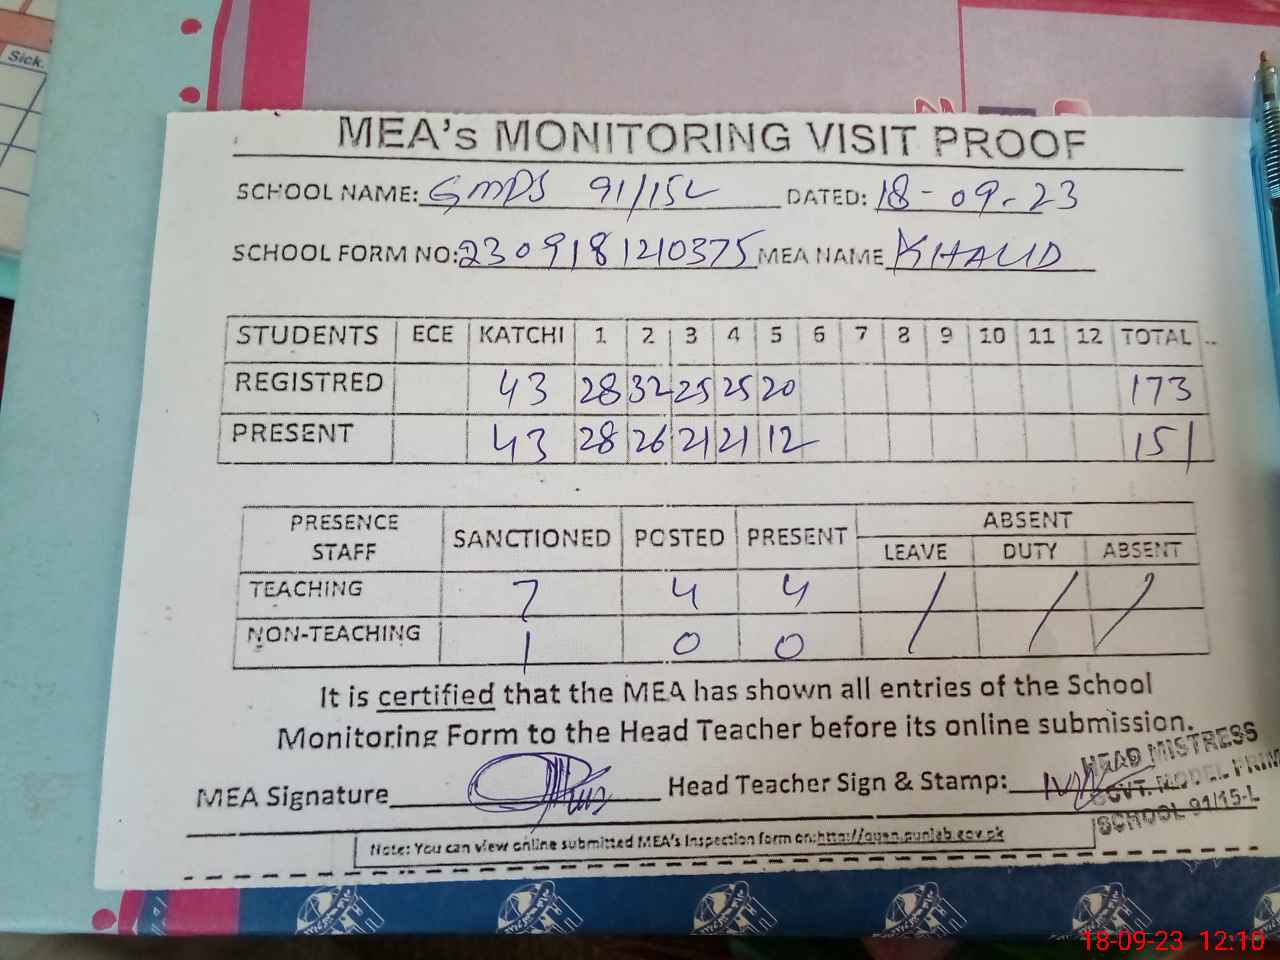 Sick.
MEA's MONITORING VISIT PROOF
SCHOOL NAME: GMPS 91/15L DATED: 18-09-23
SCHOOL FORM NO: 2309181210375 MEA NAME KHALID
STUDENTS ECE KATCHI 1 2 3 4 5 6 7 8 9 10 11 12 TOTAL
REGISTRED 43 28 32 25 25 20 173
PRESENT 43 28 26 21 21 12 151
PRESENCE STAFF SANCTIONED POSTED PRESENT ABSENT
LEAVE DUTY ABSENT
TEACHING 7 4 4 / / /
NON-TEACHING 1 0 0
It is certified that the MEA has shown all entries of the School
Monitoring Form to the Head Teacher before its online submission.
MEA Signature Head Teacher Sign & Stamp:
HEAD MISTRESS
GOVT. MODEL PRIM
SCHOOL 91/15-L
Note: You can view online submitted MEA's Inspection form on: http://open.punjab.gov.pk
18-09-23 12:10